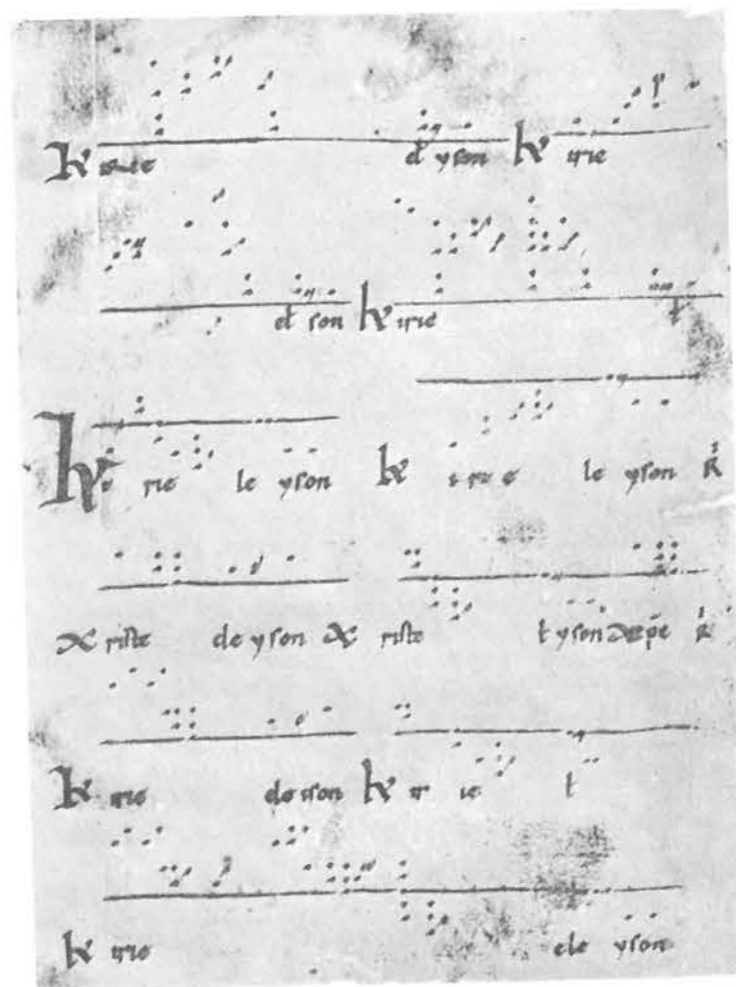 Kirie el yson K irie
el son K irie
K i rie le yson K i ri e le yson
X riste le yson X riste yson
K irie le ison K ir ie
K irie ele yson